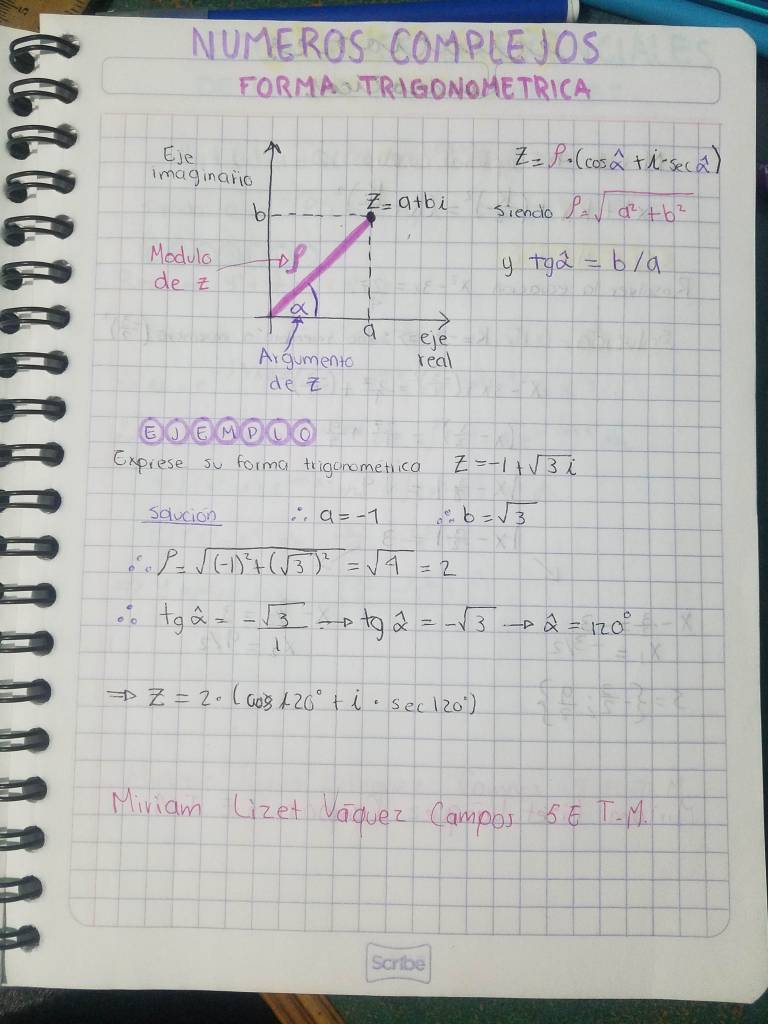 NUMEROS COMPLEJOS
FORMA TRIGONOMETRICA
Eje
imaginario
b
Z=a+bi
Modulo
de z
ρ
α
a
eje
real
Argumento
de Z
Z=ρ·(cosα̂+i·secα̂)
siendo ρ=√a²+b²
y tgα̂=b/a
EJEMPLO
Exprese su forma trigonometrica Z=-1+√3i
Solución ∴a=-1 ∴b=√3
∴ρ=√(-1)²+(√3)²=√4=2
∴ tgα̂=-√3/1 → tgα̂=-√3 → α̂=120°
⇒ Z=2·(cos120°+i·sec120°)
Miriam Lizet Váquez Campos 5E T-M.
Scribe